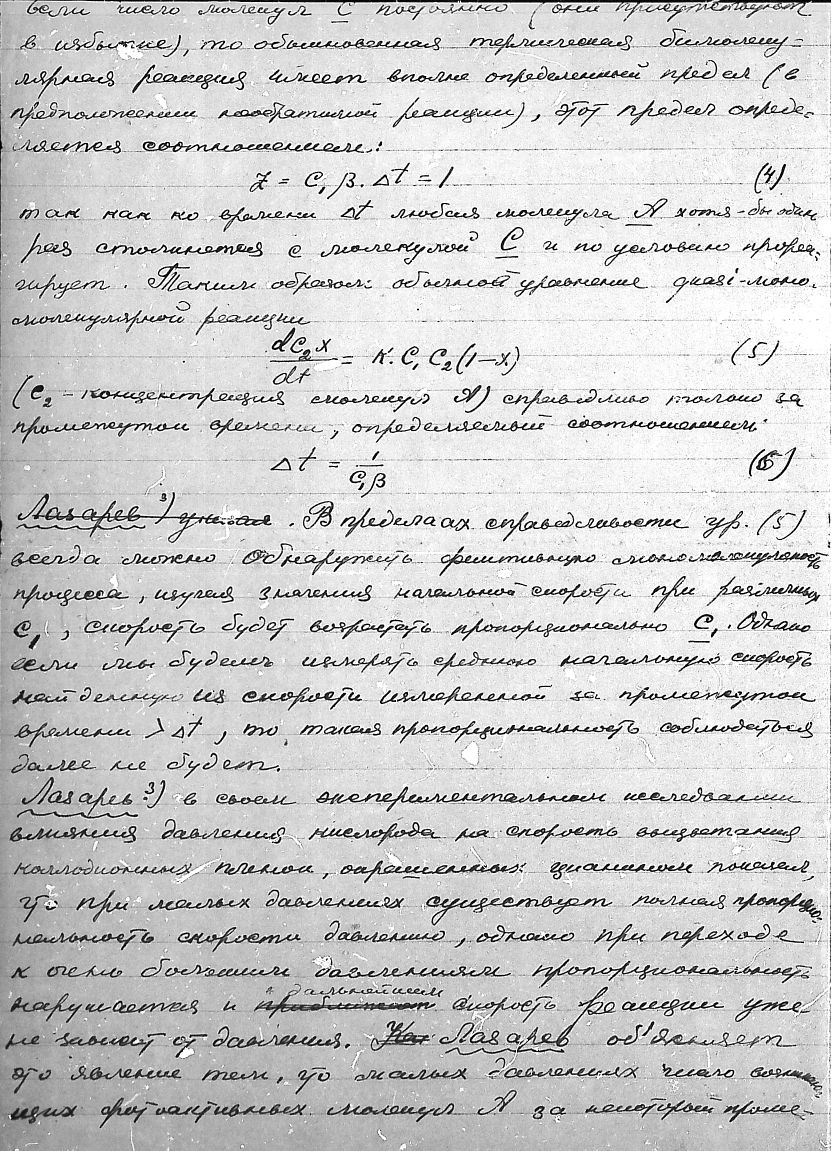 если число молекул C постоянно (они присутствуют
в избытке), то обыкновенная термическая бимолеку-
лярная реакция имеет вполне определенный предел (в
предположении необратимой реакции), этот предел опреде-
ляется соотношением:
Z = C₁ β. Δt = 1 (4)
так как ко времени Δt любая молекула A хотя-бы один
раз столкнется с молекулой C и по условию прореа-
гирует. Таким образом обычное уравнение quasi-моно-
молекулярной реакции
dC₂x/dt = K. C₁ C₂ (1-x) (5)
(C₂ - концентрация молекул A) справедливо только за
промежуток времени, определяемый соотношением:
Δt = 1/C₁β (6)
Лазарев ³) . В пределаах справедливости ур. (5)
всегда можно обнаружить фиктивную мономолекулярность
процесса, изучая значения начальной скорости при различных
C₁, скорость будет возрастать пропорционально C₁. Однако
если мы будем измерять среднюю начальную скорость
найденную из скорости измеренной за промежуток
времени > Δt, то такая пропорциональность соблюдаться
далее не будет.
Лазарев ³) в своем экспериментальном исследовании
влияния давления кислорода на скорость выцветания
коллодионных пленок, окрашенных цианином показал,
что при малых давлениях существует полная пропорцио-
нальность скорости давлению, однако при переходе
к очень большим давлениям пропорциональность
дальнейшем
нарушается и приближает скорость реакции уже
не зависит от давления. Лазарев об'ясняет
это явление тем, что малых давлениях число возникаю-
щих фотоактивных молекул A за некоторый проме-